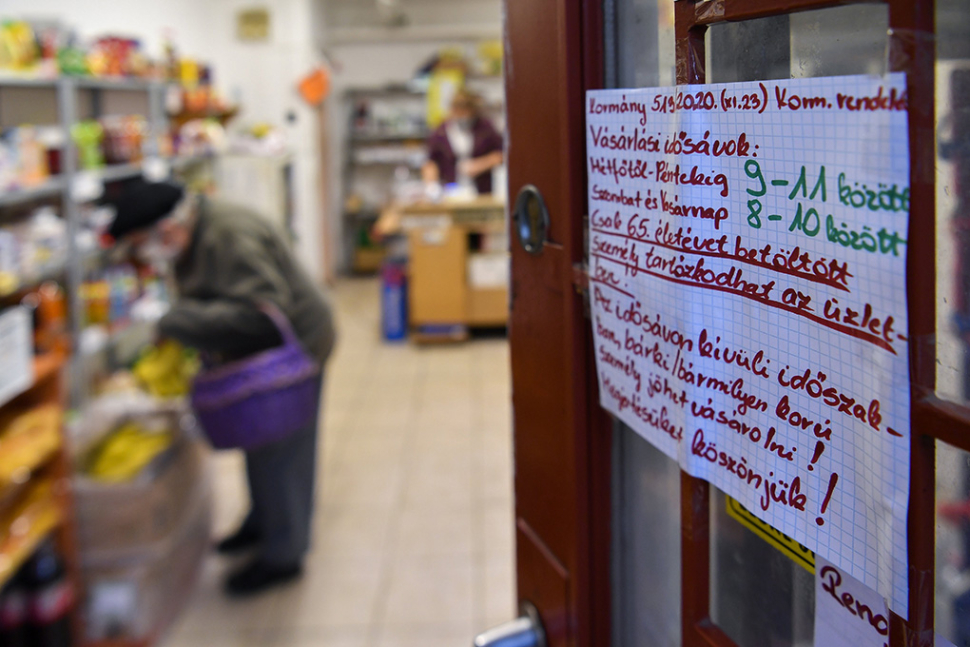 Kormány 513/2020. (XI.23) Korm. rendelet
Vásárlási idősávok:
Hétfőtől-Péntekig 9-11 között
Szombat és Vasárnap 8-10 között
Csak 65. életévet betöltött
személy tartózkodhat az üzlet-
ben!
Az idősávon kivüli időszak-
ban, bárki/bármilyen korú
személy jöhet vásárolni!
Megértésüket köszönjük!